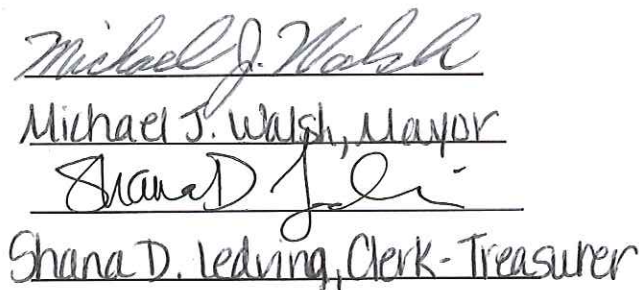 Michael J. Walsh
Michael J. Walsh, Mayor
Shana D
Shana D. Ledving, Clerk-Treasurer